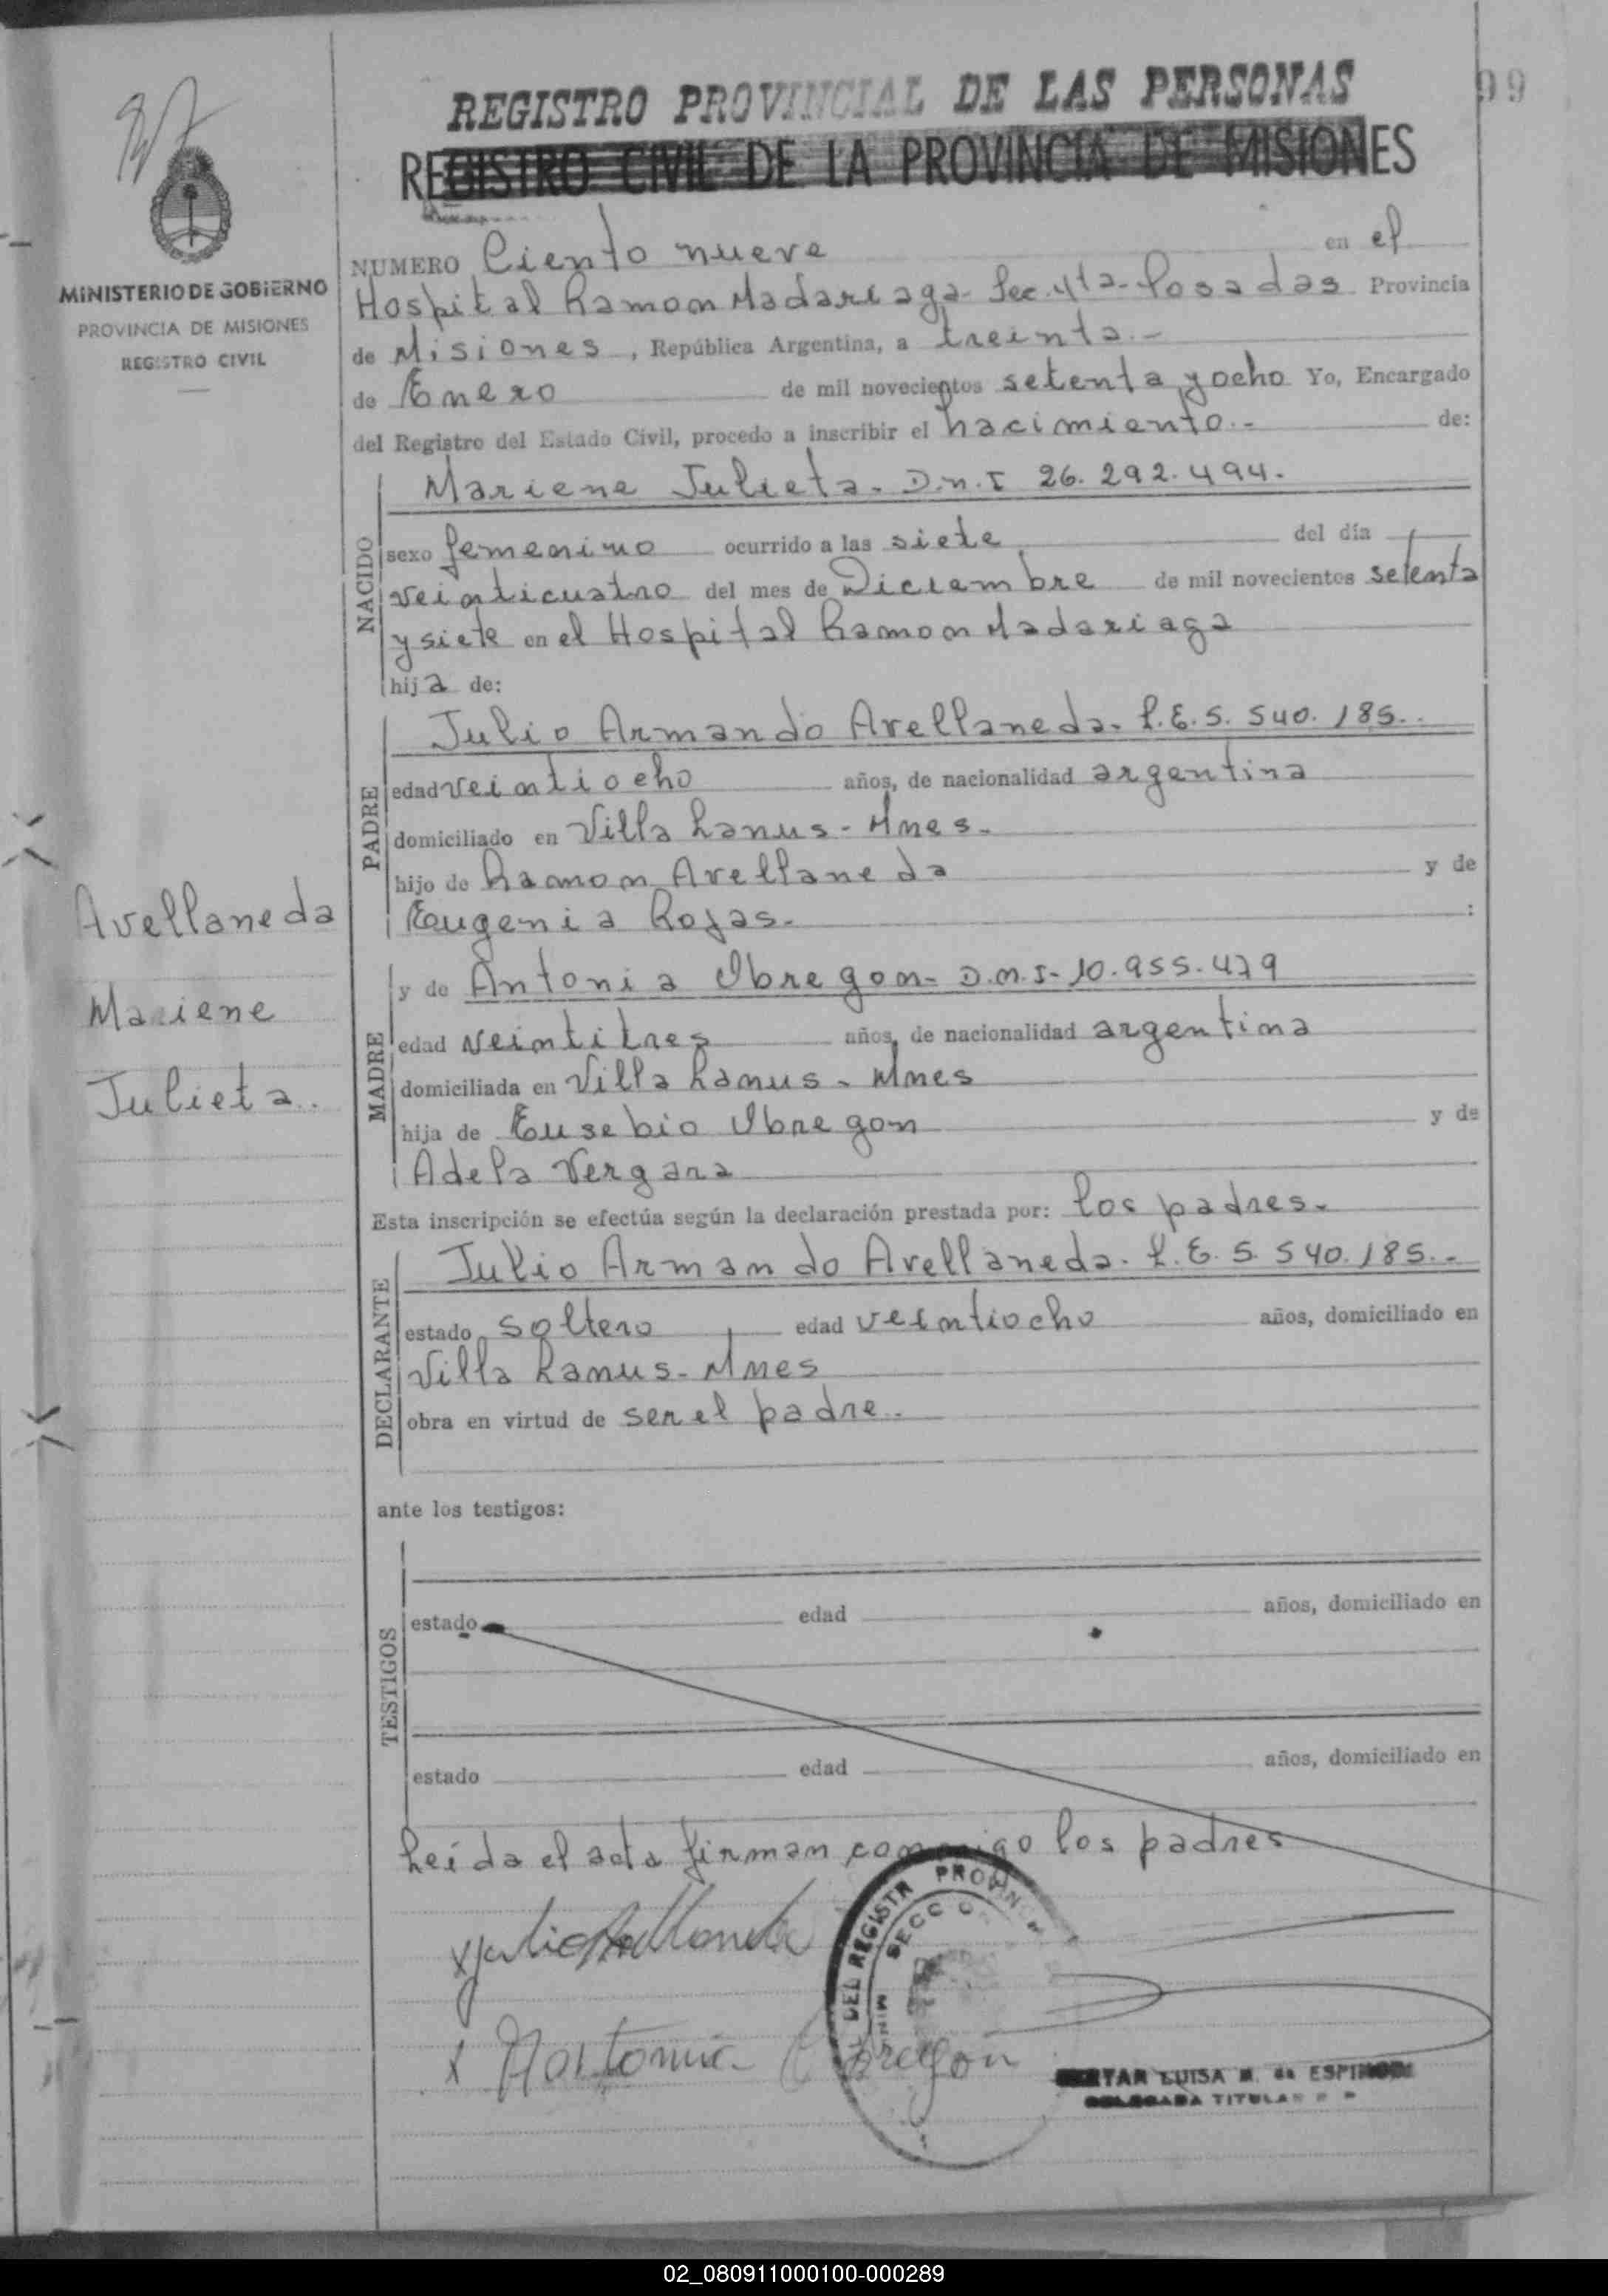 99
REGISTRO PROVINCIAL DE LAS PERSONAS
REGISTRO CIVIL DE LA PROVINCIA DE MISIONES
MINISTERIO DE GOBIERNO
PROVINCIA DE MISIONES
REGISTRO CIVIL
NUMERO Ciento nueve en el
Hospital Ramon Madariaga - Sec. 4ta - Posadas Provincia
de Misiones, República Argentina, a treinta.-
de Enero de mil novecientos setenta y ocho Yo, Encargado
del Registro del Estado Civil, procedo a inscribir el nacimiento.- de:
NACIDO
Mariene Julieta. D.N.I 26.292.494.
sexo femenino ocurrido a las siete del día
veinticuatro del mes de Diciembre de mil novecientos setenta
y siete en el Hospital Ramon Madariaga
hija de:
PADRE
Julio Armando Avellaneda. L.E. 5.540.185..
edad veintiocho años, de nacionalidad argentina
domiciliado en Villa Lanus - Mnes.
hijo de Ramon Avellaneda y de
Eugenia Rojas.
Avellaneda
Mariene
Julieta.
MADRE
y de Antonia Obregon - D.N.I - 10.955.479
edad veintitres años, de nacionalidad argentina
domiciliada en Villa Lanus - Mnes
hija de Eusebio Obregon y de
Adela Vergara
Esta inscripción se efectúa según la declaración prestada por: los padres.
DECLARANTE
Julio Armando Avellaneda. L.E. 5.540.185..
estado soltero edad veintiocho años, domiciliado en
Villa Lanus - Mnes
obra en virtud de ser el padre.
ante los testigos:
TESTIGOS
estado edad años, domiciliado en
estado edad años, domiciliado en
Leída el acta firman conmigo los padres
x Julio Avellaneda
DEL REGISTR PROVIN
SECCION
x Antonia Obregon
LUISA M. de ESPINDOLA
DELEGADA TITULAR
02_080911000100-000289